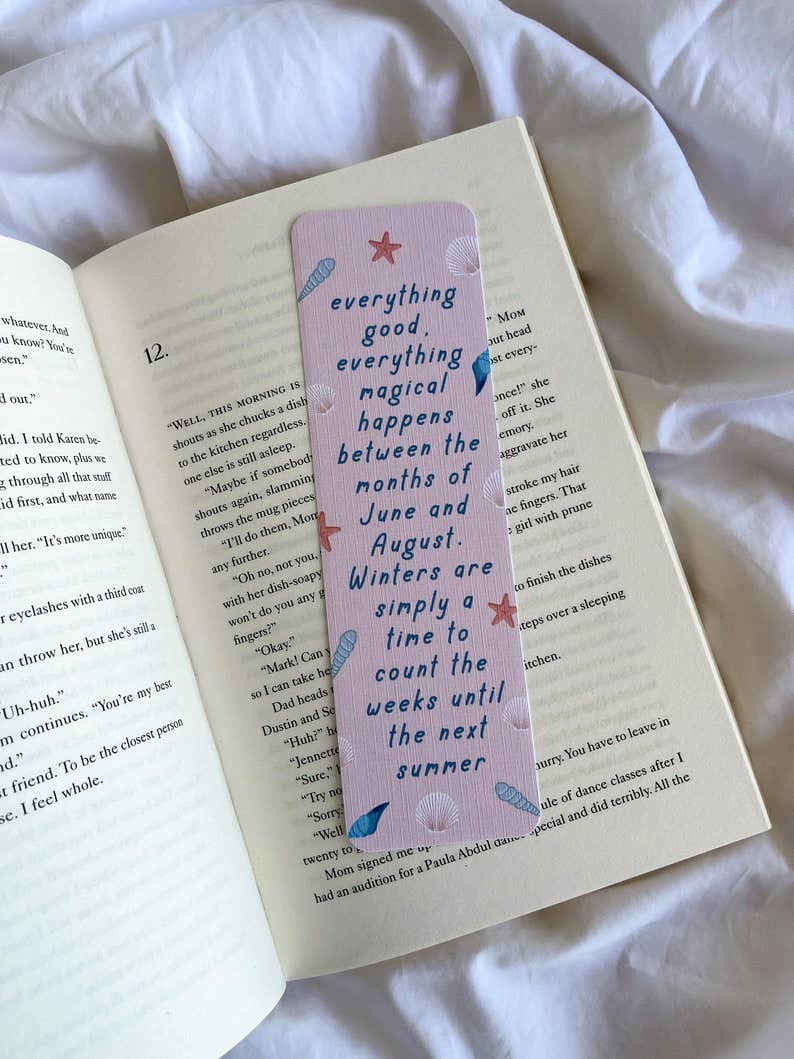 whatever. And
ou know? You're
osen."
d out."
did. I told Karen be-
ted to know, plus we
g through all that stuff
id first, and what name
ll her. "It's more unique."
"
r eyelashes with a third coat
an throw her, but she's still a
"Uh-huh."
m continues. "You're my best
nd."
st friend. To be the closest person
se. I feel whole.
12.
"Well, this morning is
" Mom
shouts as she chucks a dish
out head
to the kitchen regardless.
ost every-
one else is still asleep.
"Maybe if somebody
once!" she
shouts again, slamming
off it. She
throws the mug pieces
emory.
"I'll do them, Mom
aggravate her
any further.
"Oh no, not you,
stroke my hair
with her dish-soapy
ne fingers. That
won't do you any g
e girl with prune
fingers?"
"Okay."
"Mark! Can y
to finish the dishes
so I can take he
Dad heads
steps over a sleeping
Dustin and Sc
"Huh?" he
itchen.
"Jennette
"Sure,"
"Try no
"Sorry.
hurry. You have to leave in
"Well
twenty to g
ule of dance classes after I
Mom signed me up
special and did terribly. All the
had an audition for a Paula Abdul dance
everything
good,
everything
magical
happens
between the
months of
June and
August.
Winters are
simply a
time to
count the
weeks until
the next
summer